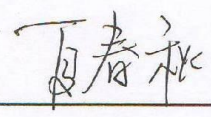 夏春秋